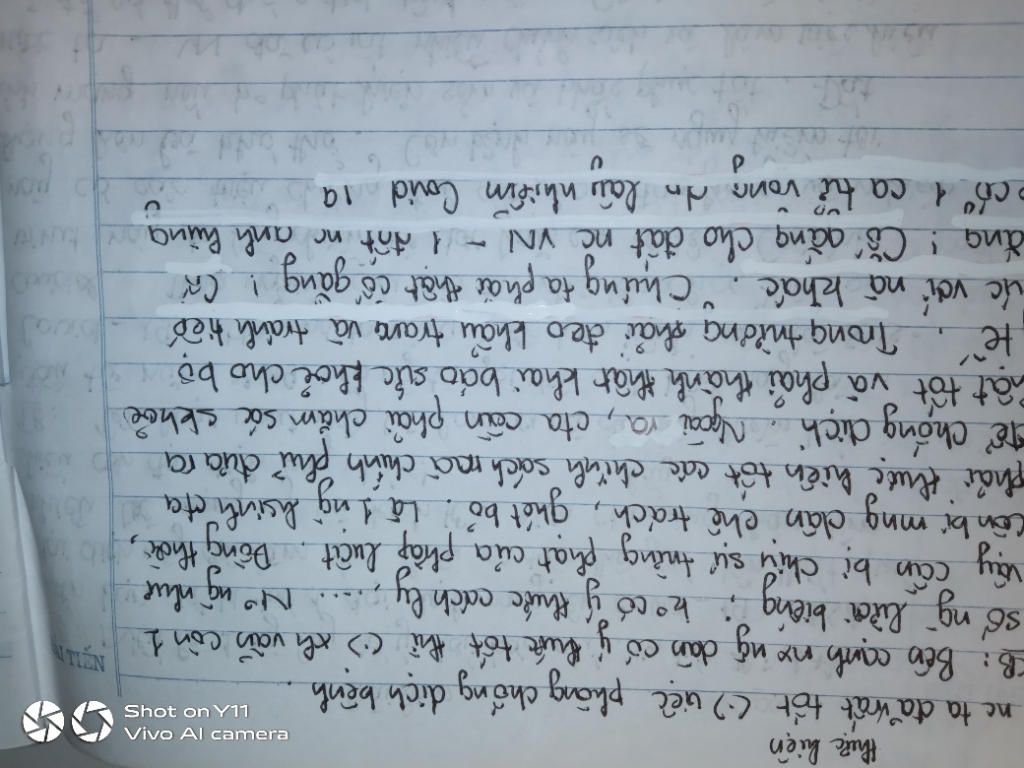 thực hiện
nc ta đã rất tốt (-) việc phòng chống dịch bệnh.
B: Bên cạnh nx ng dân có ý thức tốt thì (-) xh vẫn còn 1
số ng lười biếng, k° có ý thức cách ly, .... N° ng như
vậy cần bị chịu sự trừng phạt của pháp luật. Đồng thời,
còn bị mng dân chê trách, ghét bỏ. Là 1 ng hsinh cta
phải thực hiện tốt các chính sách mà chính phủ đưa ra
để chống dịch. Ngoài ra, cta cần phải chăm sóc skhoẻ
tốt và phải thành thật khai báo sức khoẻ cho bộ
tế. Trong trường phải đeo khẩu trang và tránh tiếp
với khác. Chúng ta phải thật cố gắng! Cố
gắng! Cố gắng cho đất nc VN - 1 đất nc anh hùng
có 1 ca tử vong lây nhiễm Covid 19
TIẾN
Shot on Y11
Vivo AI camera